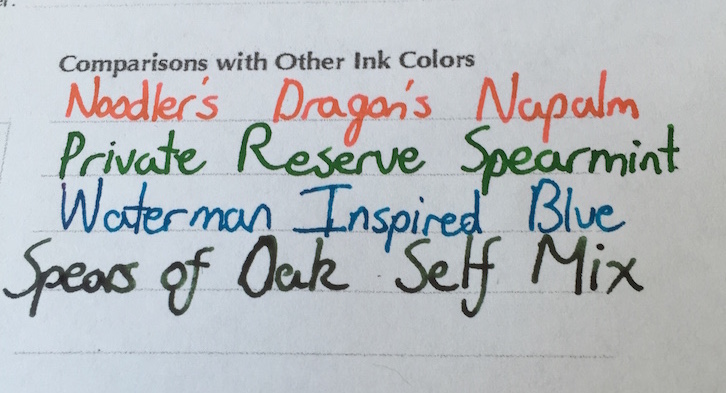 Comparisons with Other Ink Colors
Noodler's Dragon's Napalm
Private Reserve Spearmint
Waterman Inspired Blue
Spears of Oak Self Mix